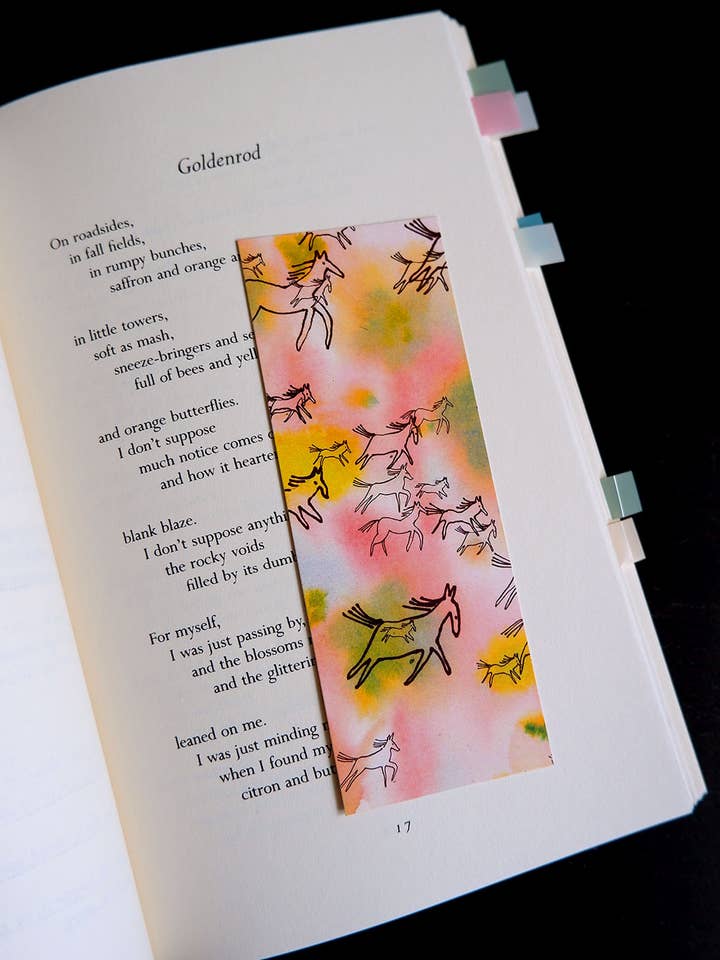 Goldenrod
On roadsides,
in fall fields,
in rumpy bunches,
saffron and orange
in little towers,
soft as mash,
sneeze-bringers and
full of bees and
and orange butterflies.
I don't suppose
much notice comes
and how it
blank blaze.
I don't suppose
the rocky voids
filled by its
For myself,
I was just passing by,
and the blossoms
and the
leaned on me.
I was just minding
when I found my
citron and
17